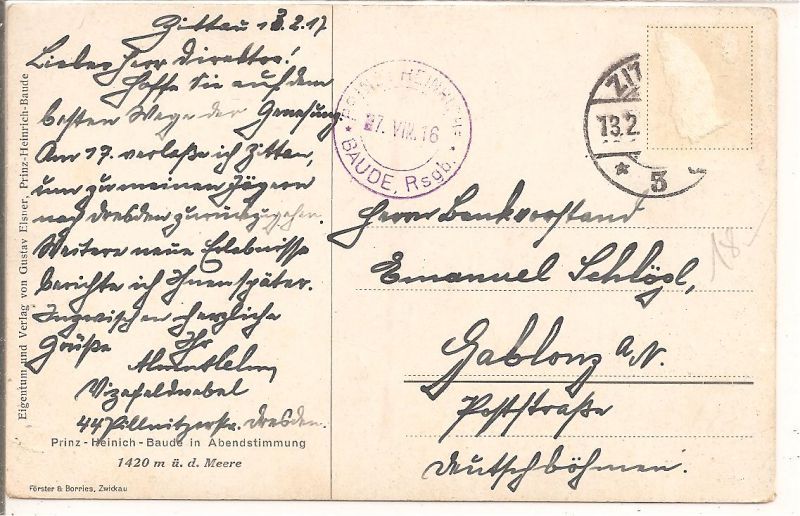 Zittau 13.2.17
Lieber Herr Direktor!
Hoffe Sie auf dem
besten Wege der Genesung.
Am 17. verlaße ich Zittau,
um zu meinen Jägern
nach Dresden zurückzugehen.
Weitere neue Erlebnisse
berichte ich Ihnen später.
Inzwischen herzliche
Grüße Ihr
Vizefeldwebel
44 Pillnitzerstr. Dresden.
Prinz-Heinich-Baude in Abendstimmung
1420 m ü. d. Meere
Förster & Borries, Zwickau
Eigentum und Verlag von Gustav Elsner, Prinz-Heinrich-Baude
PRINZ HEINRICH
27. VIII. 16
BAUDE, Rsgb.
ZIT
13.2.
* 5
Herrn Bankvorstand
Emanuel Schlögl,
Gablonz a/N.
Poststraße
Deutschböhmen.
18-